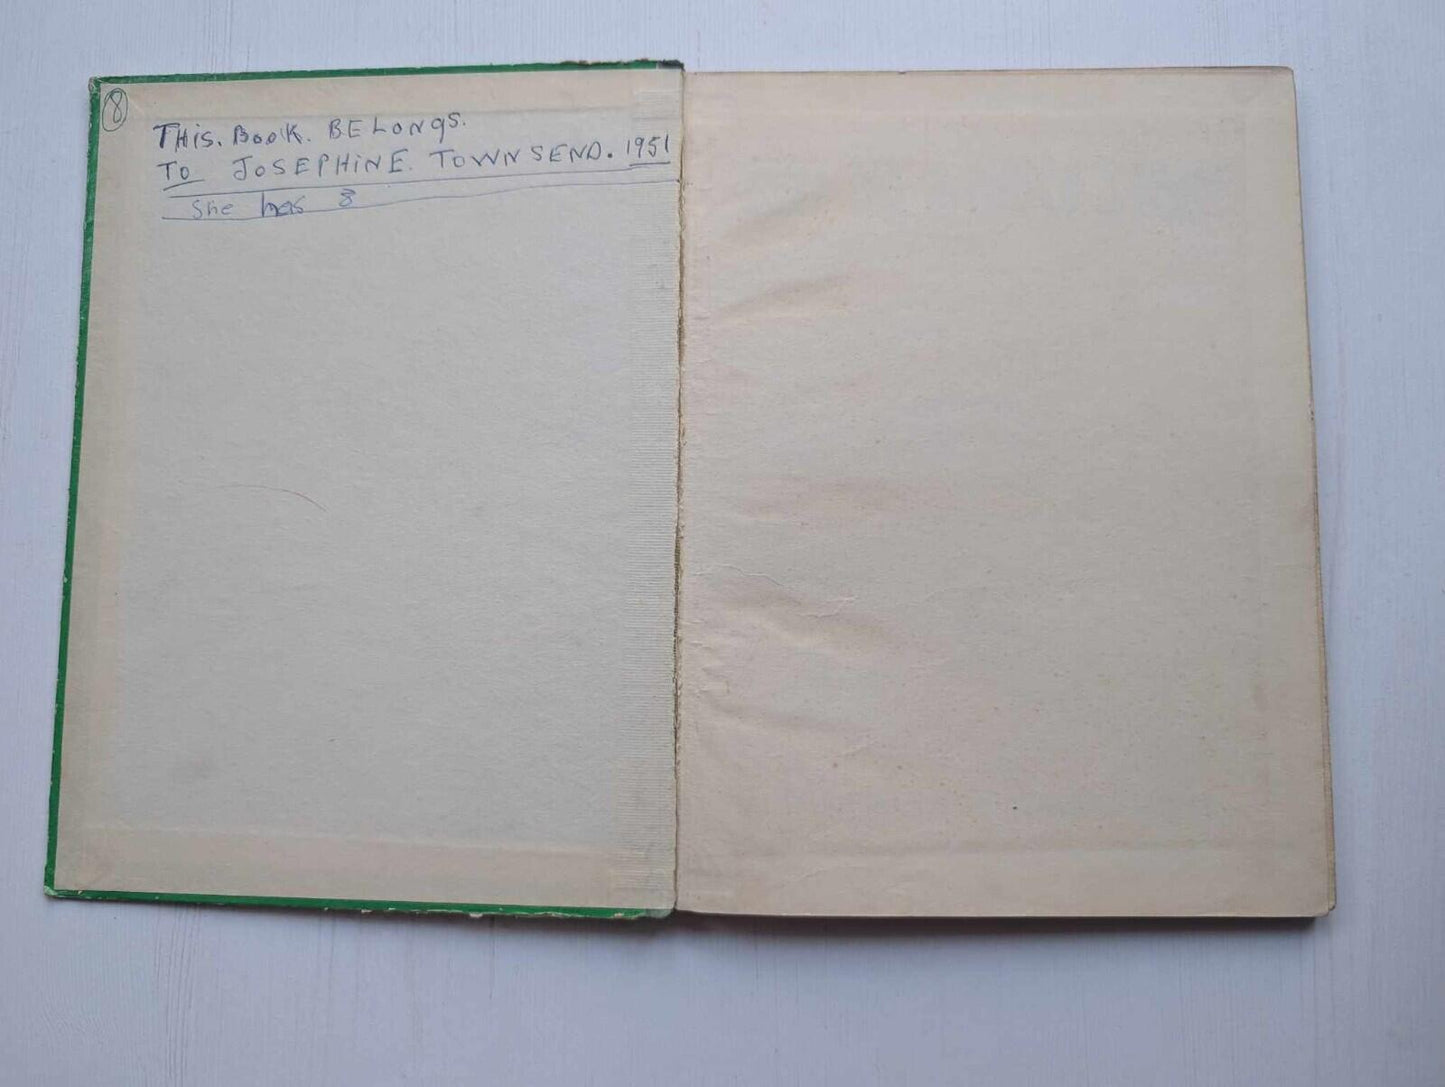 8
THiS. BooK. BELONgS.
To JoSEPHiNE. TOWNSEND. 1951
She has 8